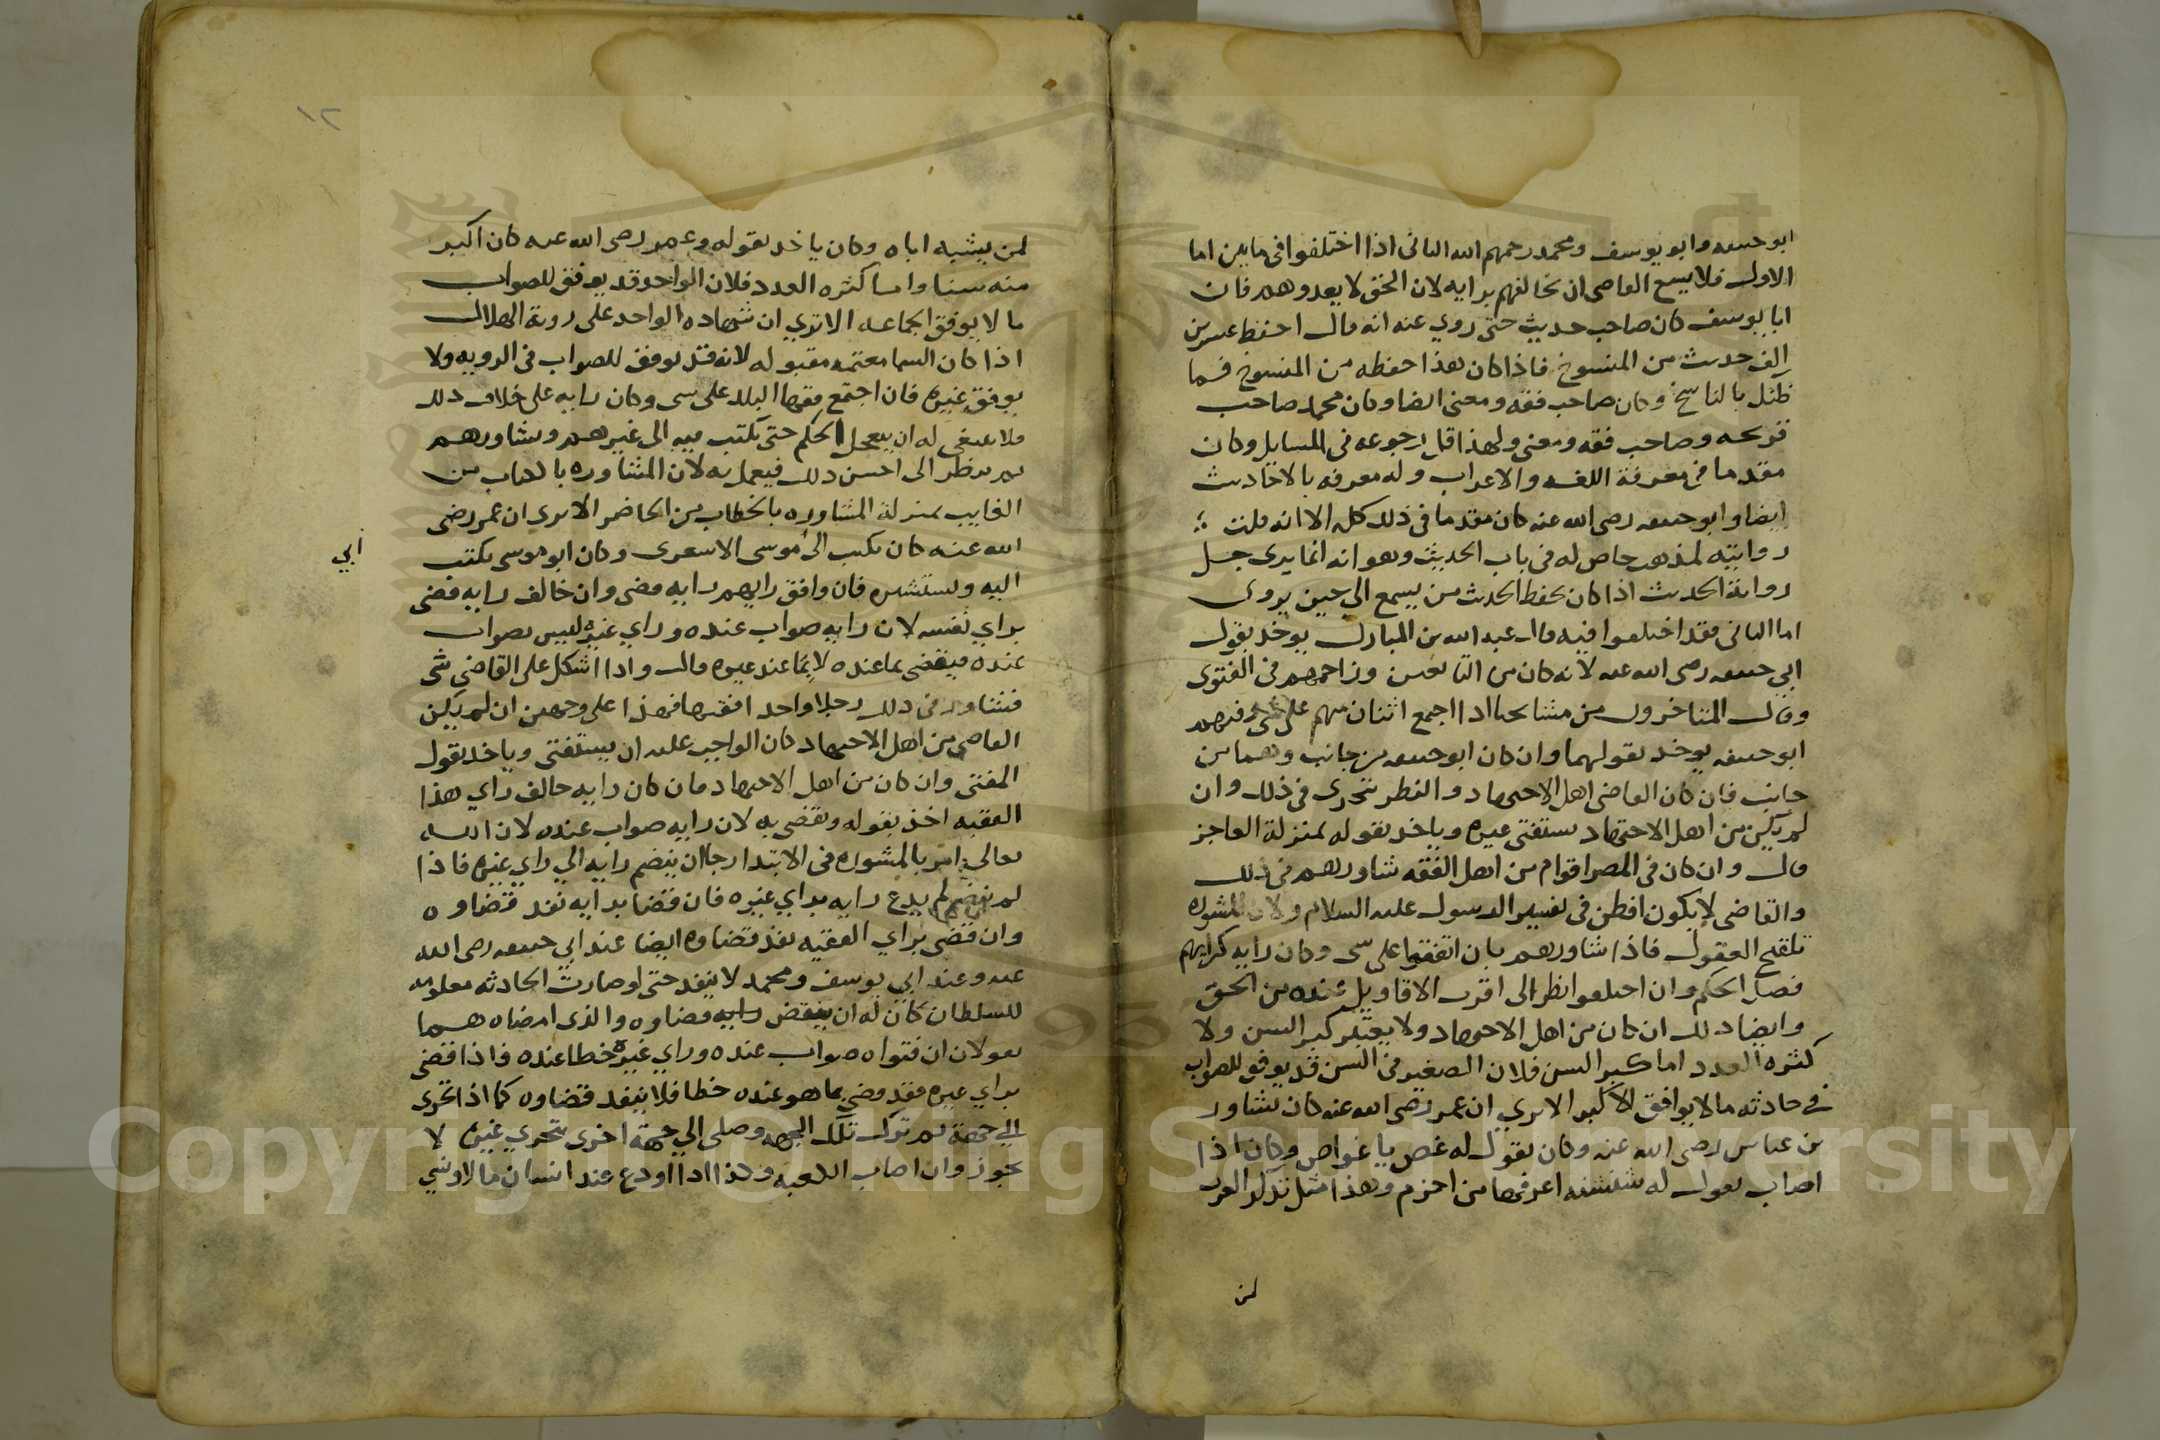 ابو حنيفه وابو يوسف ومحمد رحمهم الله الثانى اذا اختلفوا فى ما بين اما
الاول فلا يسع القاضى ان يخالفهم برايه لان الحق لا يعدوهم فان
ابا يوسف كان صاحب حديث حتى روي عنه انه قال احفظ عشرين
الف حديث من المنسوخ فاذا كان هذا حفظه من المنسوخ فما
ظنك بالناسخ وكان صاحب فقه ومعنى ايضا وكان محمد صاحب
قريحه وصاحب فقه ومعنى ولهذا قل رجوعه فى المسايل وكان
مقدما فى معرفة اللغه والاعراب وله معرفه بالاحاديث
ايضا وابو حنيفه رضى الله عنه كان مقدما فى ذلك كله الا انه قلت
روايته لمذهب خاص له فى باب الحديث وهو انه انما يرى حل
رواية الحديث اذا كان يحفظ الحديث من يسمع الي حين يروى
اما الثانى فقد اختلفوا فيه قال عبد الله بن المبارك يوخذ بقول
ابي حنيفه رضى الله عنه لانه كان من التابعين وزاحمهم فى الفتوى
وقال المتاخرون من مشايخنا اذا اجمع اثنان منهم على شى وفيهم
ابو حنيفه يوخذ بقولهما وان كان ابو حنيفه من جانب وهما من
جانب فان كان القاضى اهل الاجتهاد والنظر يتحرى فى ذلك وان
لم يكن من اهل الاجتهاد يستفتى غيره وياخذ بقوله بمنزلة العاجز
قال وان كان فى المصر اقوام من اهل الفقه شاورهم فى ذلك
والقاضى لا يكون افطن فى نفسه الرسول عليه السلام ولان المشوره
تلقح العقول فاذا شاورهم بان اتفقوا على شى وكان رايه كرايهم
فصل الحكم وان اختلفوا نظر الى اقرب الاقاويل عنده من الحق
وايضا ذلك ان كان من اهل الاجتهاد ولا يعتبر كبر السن ولا
كثرة العدد اما كبر السن فلان الصغير فى السن قد يوفق للصواب
فى حادثه ما لا يوافق الاكبر الا يرى ان عمر رضى الله عنه كان يشاور
بن عباس رضى الله عنه وكان يقول له غص يا غواص وكان اذا
اصاب يقول له شنشنه اعرفها من اخزم وهذا مثل تذكر العرب
لمن
١٢
لمن يشبه اباه وكان ياخذ بقوله وعمر رضى الله عنه كان اكبر
منه سنا واما كثره العدد فلان الواحد قد يوفق للصواب
ما لا يوفق الجماعه الا تري ان شهاده الواحد على روية الهلال
اذا كان السما معتمه مقبوله لانه قد يوفق للصواب فى الرويه ولا
يوفق غيره فان اجتمع فقها البلد على شى وكان رايه على خلاف ذلك
فلا ينبغى له ان يعجل الحكم حتى يكتب فيه الى غيرهم ويشاورهم
ثم ينظر الى احسن ذلك فيعمل به لان المشاوره بالكتاب من
الغايب بمنزلة المشاوره بالخطاب من الحاضر الا يرى ان عمر رضى
الله عنه كان يكتب الى موسى الاشعرى وكان ابو موسى يكتب
ابي
اليه ويستشيره فان وافق رايهم رايه مضى وان خالف رايه قضى
براي نفسه لان رايه صواب عنده وراي غيره ليس بصواب
عنده فيقضى بما عنده لا بما عند غيره قال واذا اشكل على القاضى شى
فشاور فى ذلك رجلا واحدا فقيها فهذا على وجهين ان لم يكن
القاضى من اهل الاجتهاد كان الواجب عليه ان يستفتى وياخذ بقول
المفتى وان كان من اهل الاجتهاد فان كان رايه خالف راي هذا
الفقيه اخذ بقوله ويقضى به لان رايه صواب عنده لان الله
تعالي امر بالمشوره فى الابتدا رجا ان ينضم رايه الي راي غيره فاذا
لم ينضم لم يدع رايه براي غيره فان قضا برايه نفذ قضاوه
وان قضى براي الفقيه نفذ قضاوه ايضا عند ابي حنيفه رضى الله
عنه وعند ابي يوسف ومحمد لا ينفذ حتى لو صارت الحادثه معلومه
للسلطان كان له ان ينقض قضاوه والذى امضاه هما
يقولان ان فتواه صواب عنده وراي غيره خطا عنده فاذا قضى
براي غيره فقد قضى بما هو عنده خطا فلا ينفذ قضاوه كما اذا تحرى
الي جهة ثم ترك تلك الجهه وصلى الي جهة اخرى بتحري غيره لا
يجوز وان اصاب الكعبه وكذا اذا اودع عند انسان مالا ونسي